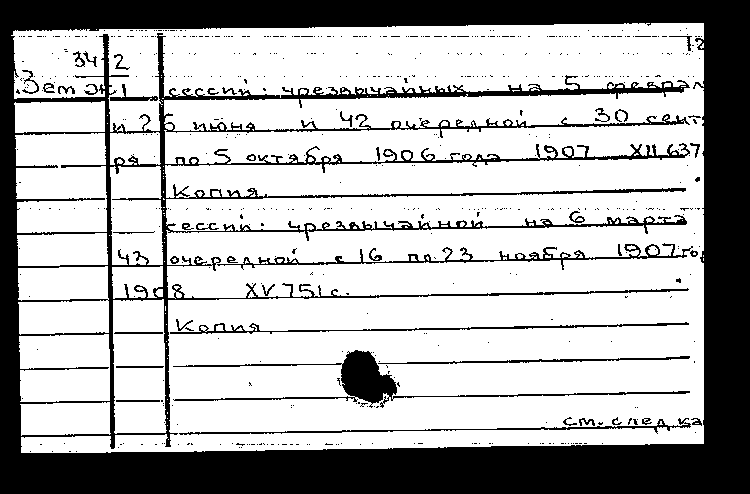 12
34-2
Зем эк1 сессий: чрезвычайных на 5 феврал
и 25 июня и 42 очередной с 30 сент
ря по 5 октября 1906 года 1907 XII, 637
Копия.
сессий: чрезвычайной на 6 марта
43 очередной с 16 по 23 ноября 1907 го
1908. XV. 751 с.
Копия.
см. след. ка